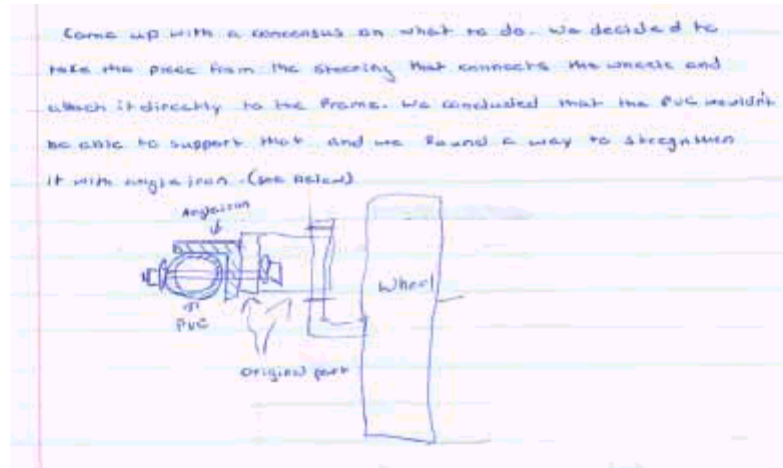 Come up with a concensus on what to do. We decided to
take the piece from the steering that connects the wheels and
attach it directly to the frame. We concluded that the PVC wouldn't
be able to support that and we found a way to stregnthen
it with angle iron. (see below)
Angle iron
Wheel
PVC
Original part